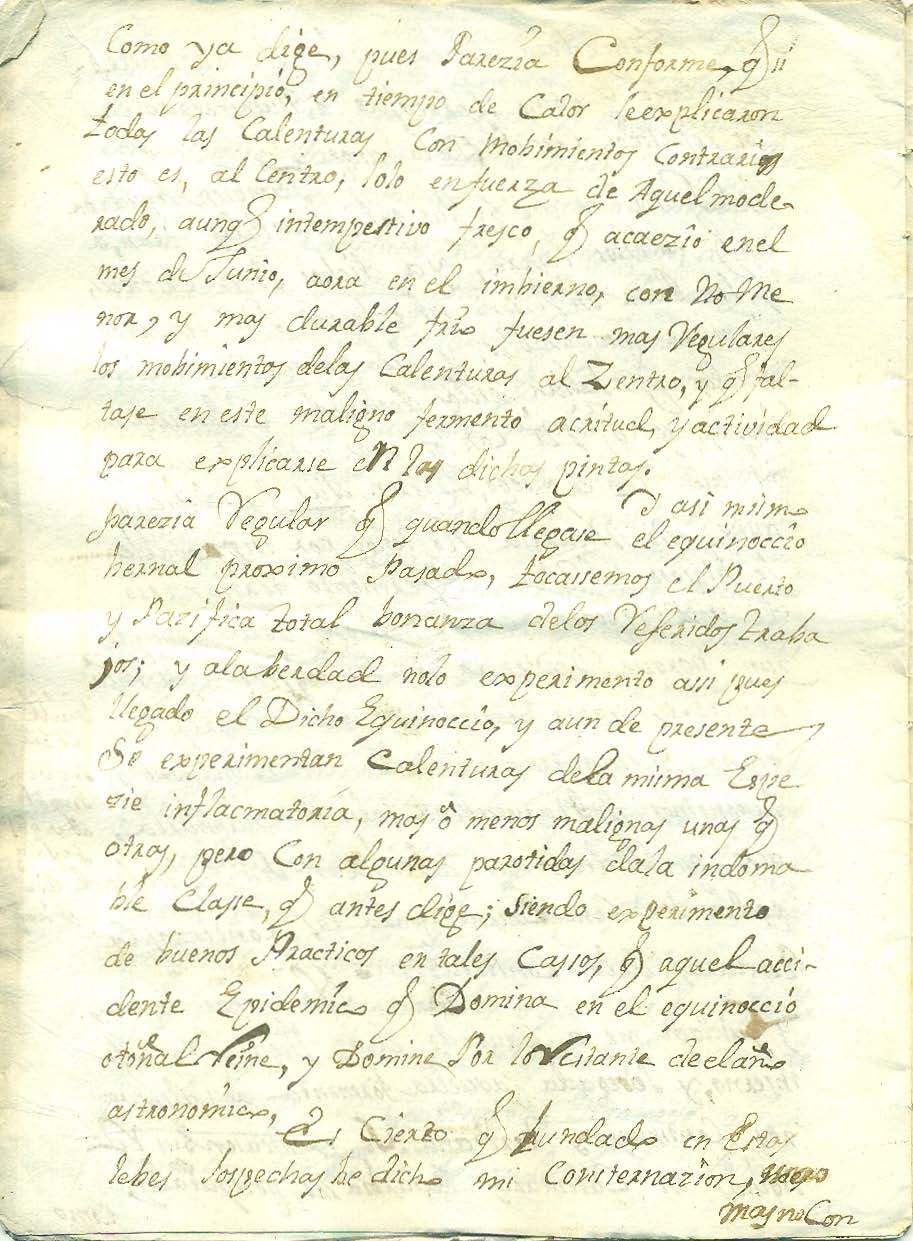 Como ya dige, pues Parezia Conforme, q si
en el principio, en tiempo de Calor se explicaron
todas las Calenturas Con mobimientos Contrarios
esto es, al Centro, solo en fuerza de Aquel mode
rado, aunq intempestivo fresco, q acaezio en el
mes de Junio, aora en el imbierno, con No Me
nor, y mas durable frio fuesen mas Regulares
los mobimientos delas Calenturas al Zentro, y q fal-
tase en este maligno fermento acritud, y actividad
para explicarse en las dichas pintas.
Y asi mismo
parezia Regular q quando llegase el equinoccio
bernal proximo Pasado, tocassemos el Puerto
y Pazifica total bonanza delos Referidos traba
jos; y ala berdad nolo experimento asi pues
llegado el Dicho Equinoccio, y aun de presente
Se experimentan Calenturas dela misma Espe
zie inflacmatoria, mas o menos malignas unas q
otras, pero Con algunas parotidas dela indoma
ble Classe, q antes dige; siendo experimento
de buenos Practicos en tales Cassos, q aquel acci-
dente Epidemico q Domina en el equinoccio
otoñal Reine, y Domine Por lo Restante de el año
astronomico,
Es Cierto q fundado en Estas
lebes sospechas he dicho mi Consternazion,
mas no Con